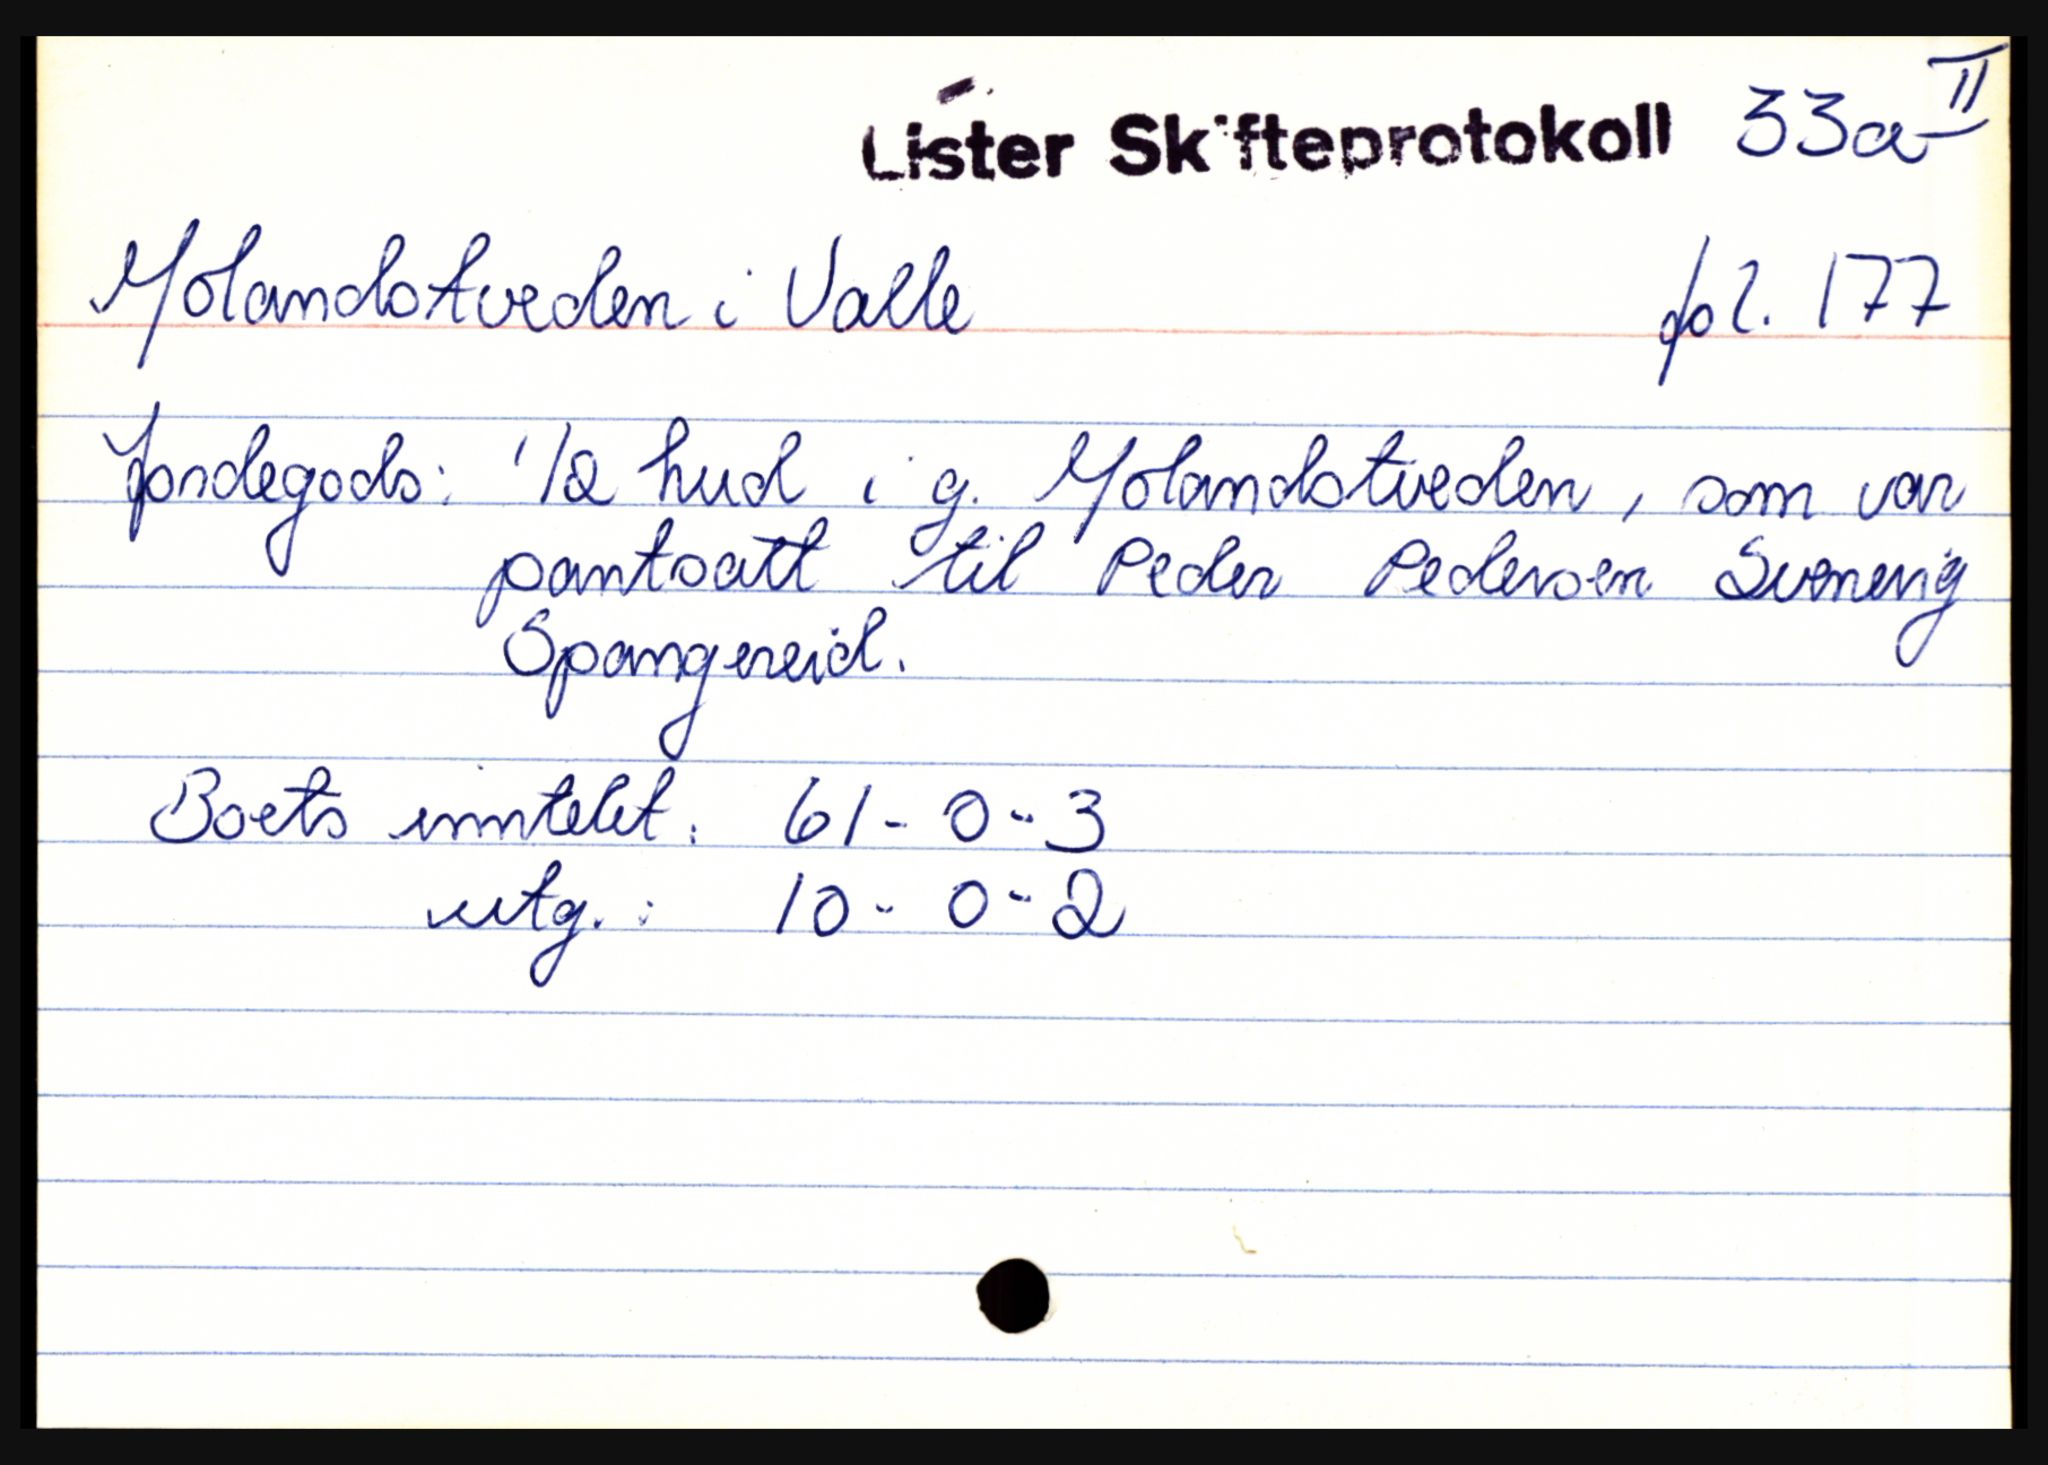 Lister Skifteprotokoll 33a II
Molandstveden i Valle fol. 177
Jordegods: 1/2 hud i g. Molandstveden, som var
pantsatt til Peder Pedersen Svenevig
Spangereid.
Boets inntekt: 61 - 0 - 3
utg. : 10 - 0 - 2